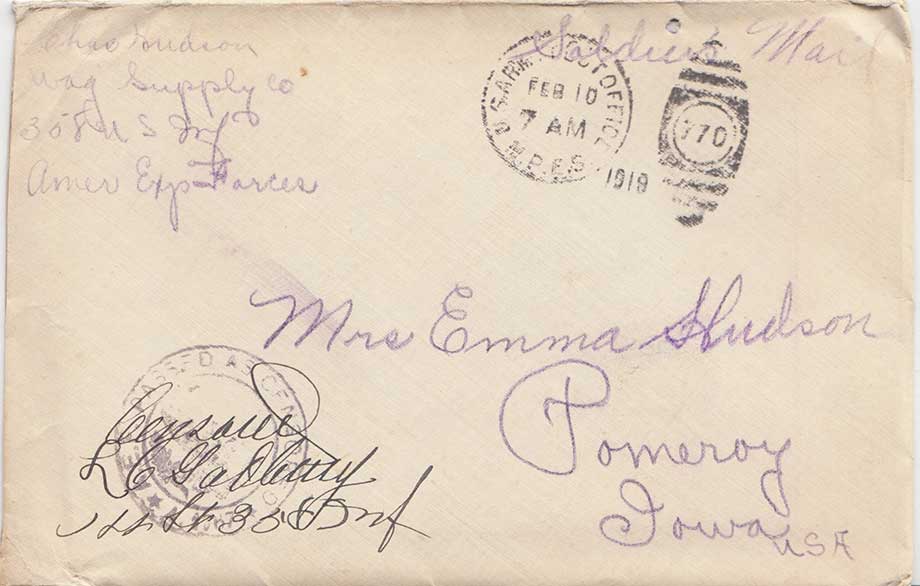 Chas Hudson
Wag Supply Co
308 U S Inf
Amer Exp Forces
Soldiers Mail
U.S. ARMY POST OFFICE
M.P.E.S.
FEB 10
7 AM
1919
770
Mrs Emma Hudson
Pomeroy
Iowa
USA
PASSED AS CENSORED
Censored
1st Lt 358 Inf